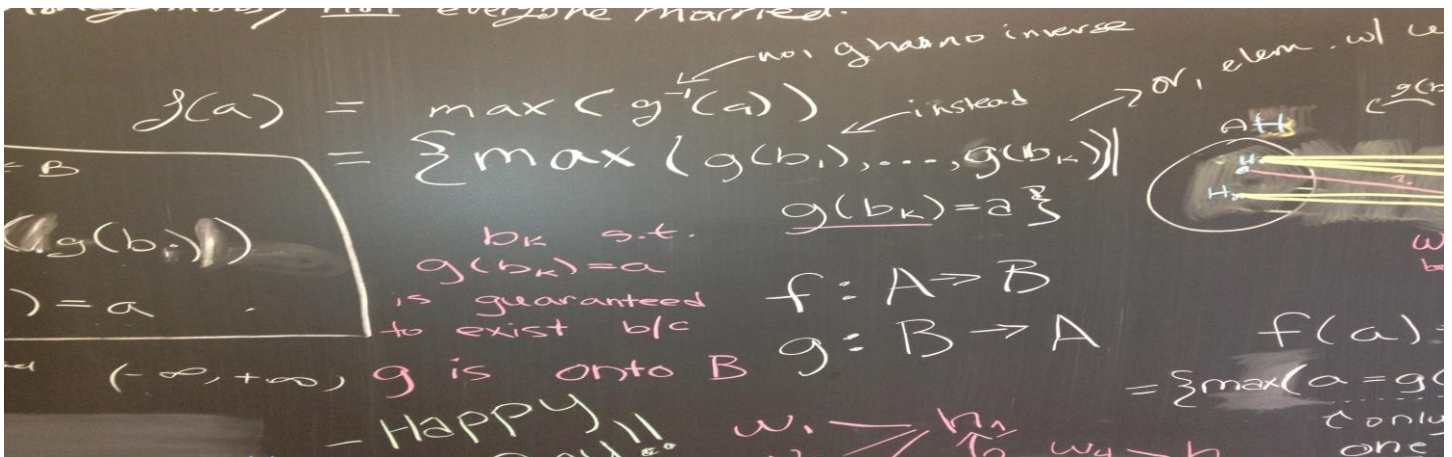 not everyone married.
no, g has no inverse
f(a) = max(g⁻¹(a))
instead
or, elem. w/
= {max(g(b₁),...,g(bₖ)|
g(bₖ)=a}
← B
g(bᵢ)
) = a
bₖ s.t.
g(bₖ)=a
is guaranteed
to exist b/c
g is onto B
(-∞,+∞)
f: A→B
g: B→A
A H
H₁
H₂
f(a)
={max(a=g(
only
one
- Happy
w₁
h₁
w₄ – h